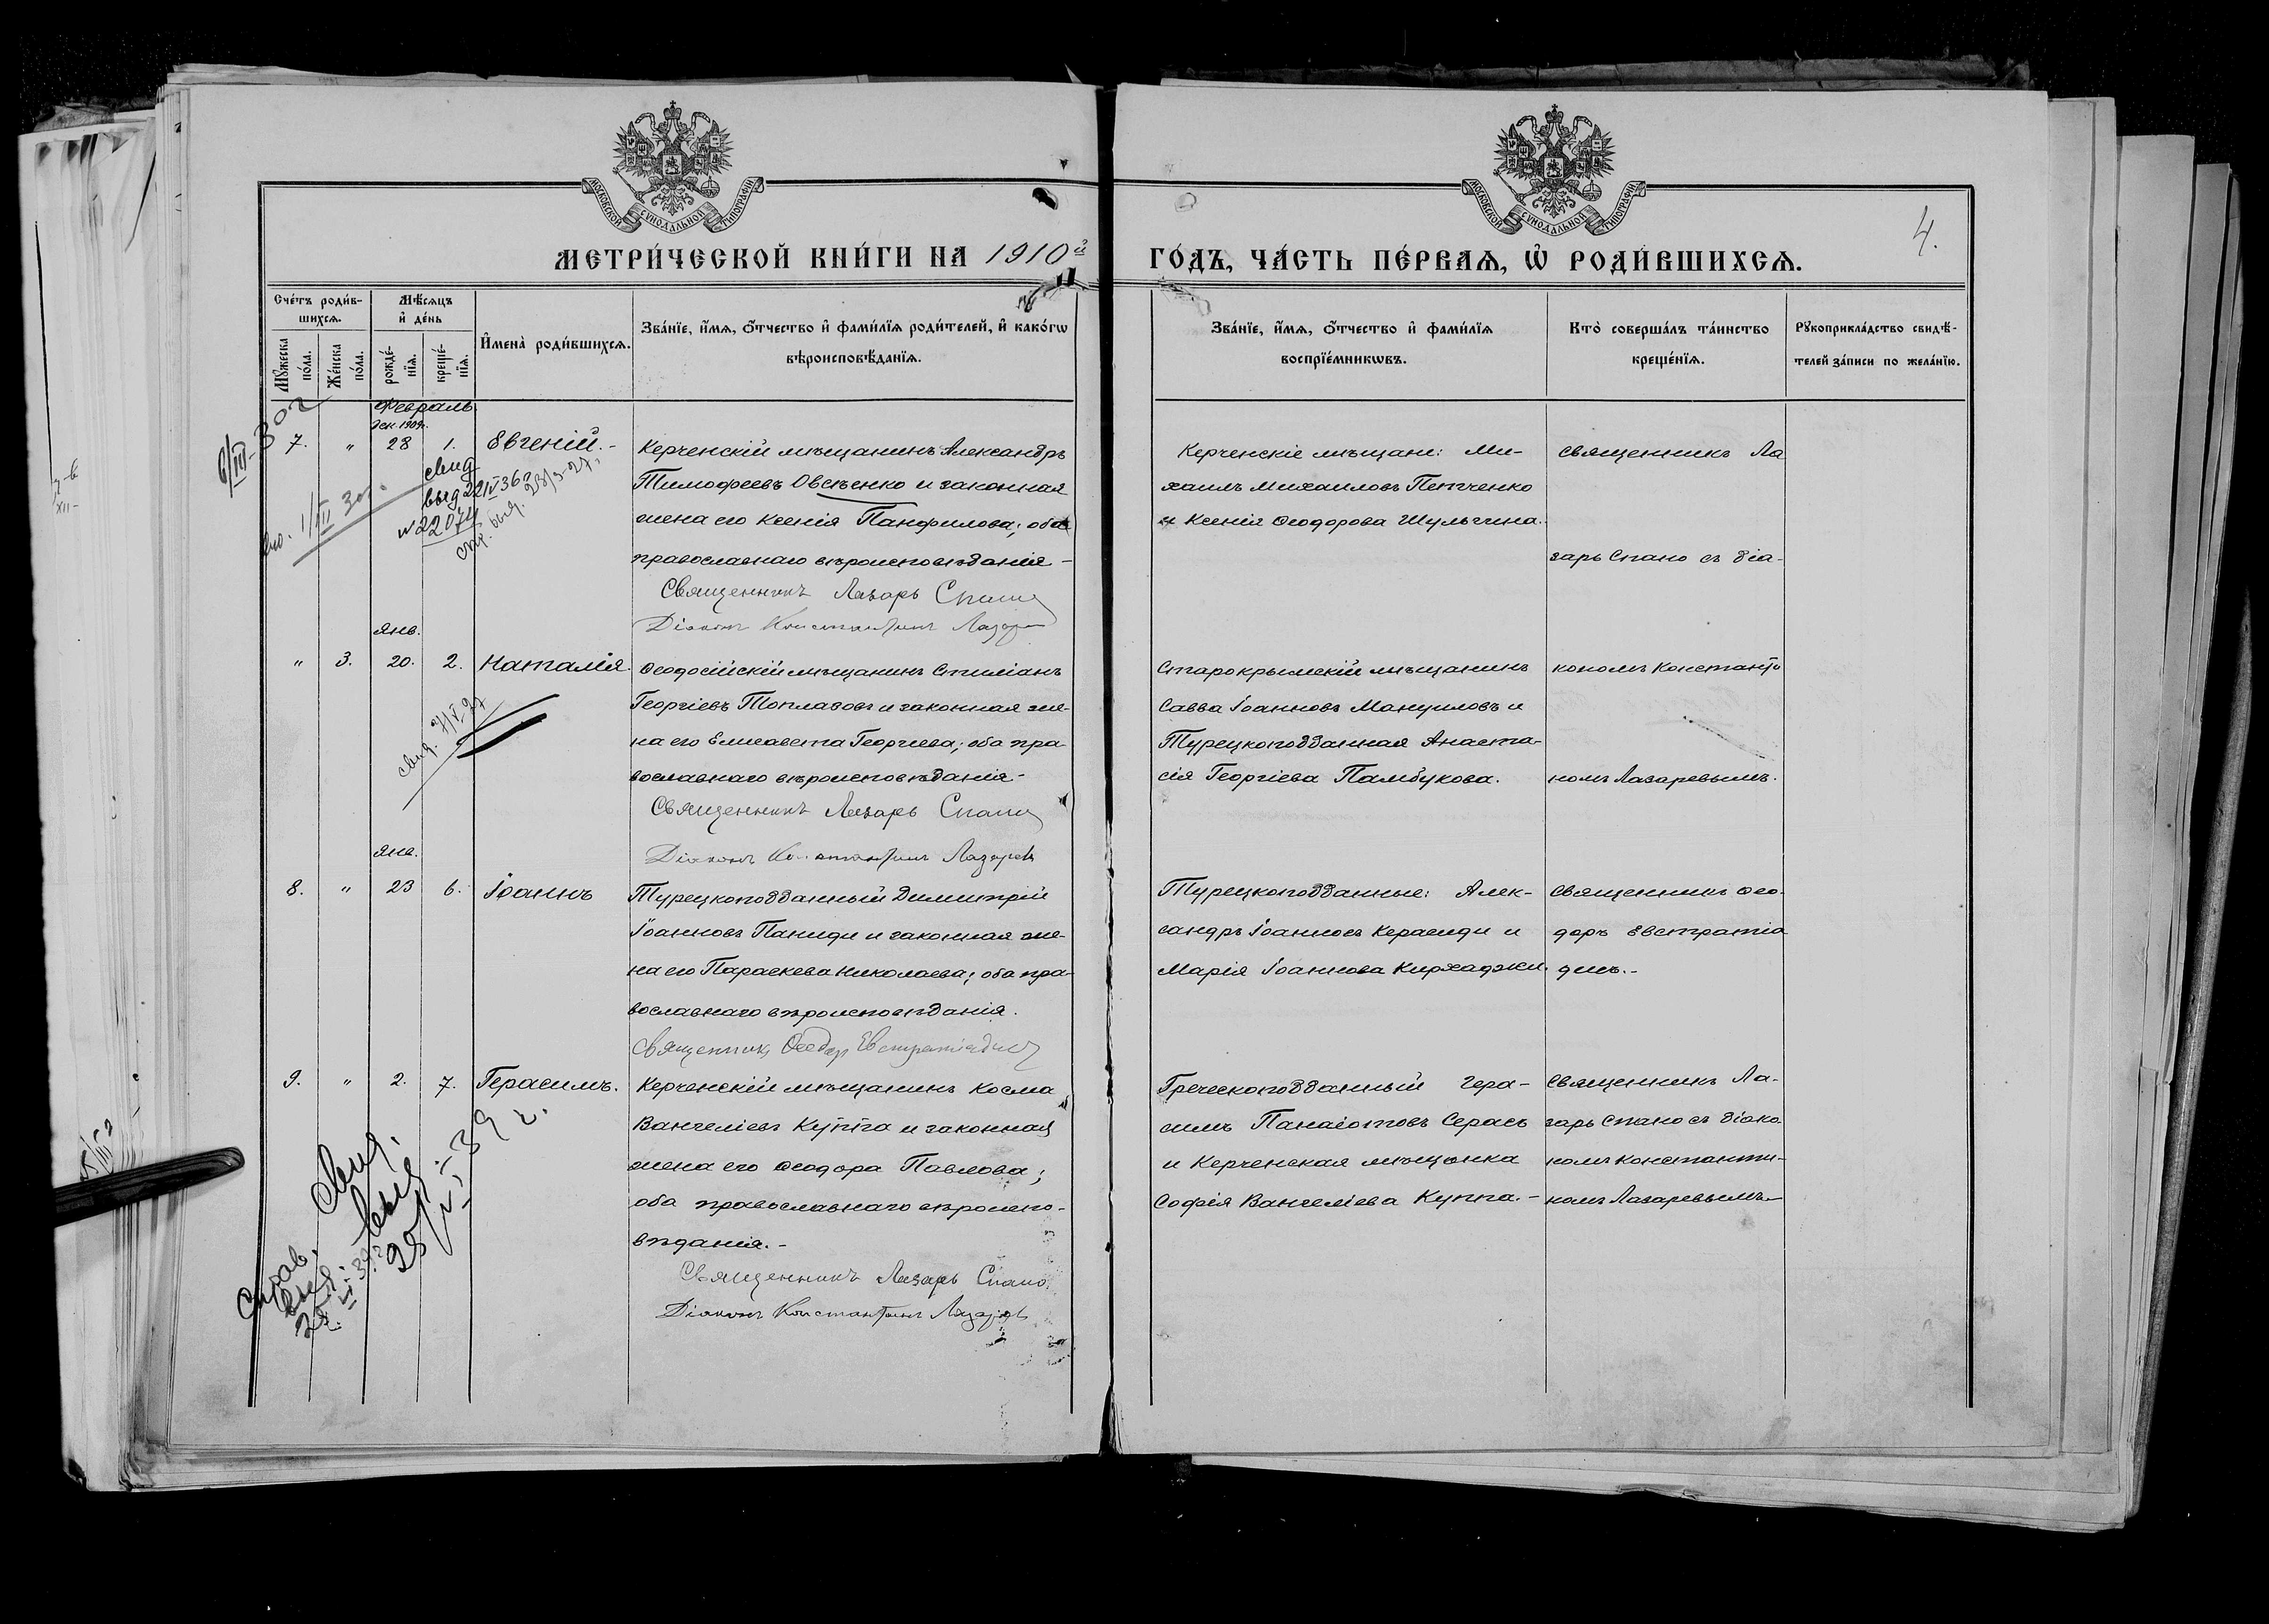 МОСКОВСКОЙ СѴНОДАЛЬНОЙ ТИПОГРАФІИ
МОСКОВСКОЙ СѴНОДАЛЬНОЙ ТИПОГРАФІИ
4.
МЕТРИ́ЧЕСКОЙ КНИ́ГИ НА 1910й ГО́ДЪ, ЧА́СТЬ ПЕ́РВАѦ, Ѡ҆ РОДИ́ВШИХСѦ.
Сче́тъ роди́в-
шихсѧ.
Мꙋжеска по́ла.
Же́нска по́ла.
Мѣ́сѧцъ
и҆ де́нь
рожде́-
нїѧ.
креще́-
нїѧ.
И҆мена̀ роди́вшихсѧ.
Зва́нїе, и҆́мѧ, ѻ҆́тчество и҆ фами́лїѧ роди́телей, и҆ како́гѡ
вѣроисповѣ́данїѧ.
Зва́нїе, и҆́мѧ, ѻ҆́тчество и҆ фами́лїѧ
воспрїе́мникѡвъ.
Кто̀ соверша́лъ та́инство
креще́нїѧ.
Рꙋкоприкла́дство свидѣ́-
телей за́писи по жела́нїю.
Февраль
дек. 1909г.
7. " 28 1. Евгеній.-
Керченскій мѣщанинъ Александръ
Тимофеевъ Овсѣенко и законная
жена его Ксенія Панфилова; оба
православнаго вѣроисповѣданія-
Священникъ Лазарь Спано
Діаконъ Константинъ Лазарев
Керченскіе мѣщане: Ми-
хаилъ Михаиловъ Петченко
и Ксенія Ѳеодорова Шульгина.
Священникъ Ла
зарь Спано съ діа-
6/III-30г
1/III 30г.
свид
выд 22/V 36г
№ 22074
спр. выд. 28/3-27г
янв.
" 3. 20. 2. Наталія.
Ѳеодосійскій мѣщанинъ Стиліанъ
Георгіевъ Топлазовъ и законная же-
на его Елисавета Георгіева; оба пра-
вославнаго вѣроисповѣданія-
Священникъ Лазарь Спано
Діаконъ Константинъ Лазарев
Старокрымскій мѣщанинъ
Савва Іоанновъ Мануиловъ и
Турецкоподданная Анаста-
сія Георгіева Памбукова.
кономъ Константи
номъ Лазаревымъ.
свид. 7/V 27
янв.
8. " 23 6. Іоаннъ
Турецкоподданный Димитрій
Іоанновъ Паниди и законная же-
на его Параскева Николаева; оба пра-
вославнаго вѣроисповѣданія.
Священникъ Ѳеодоръ Евстратіадис
Турецкоподданные: Алек-
сандръ Іоанновъ Керасиди и
Марія Іоаннова Кирхаджи.
Священникъ Ѳео-
доръ Евстратіа
дисъ.-
9. " 2. 7. Герасимъ.
Керченскій мѣщанинъ Косма
Вангеліевъ Куппа и законная
жена его Ѳеодора Павлова;
оба православнаго вѣроиспо-
вѣданія.-
Священникъ Лазарь Спано
Діаконъ Константинъ Лазарев
Греческоподданный Гера-
симъ Панаіотовъ Серасъ
и Керченская мѣщанка
Софія Вангеліева Куппа.-
Священникъ Ла-
зарь Спано съ діако-
номъ Константи-
номъ Лазаревымъ-
Свид.
выд
39 г.
Справ.
выд.